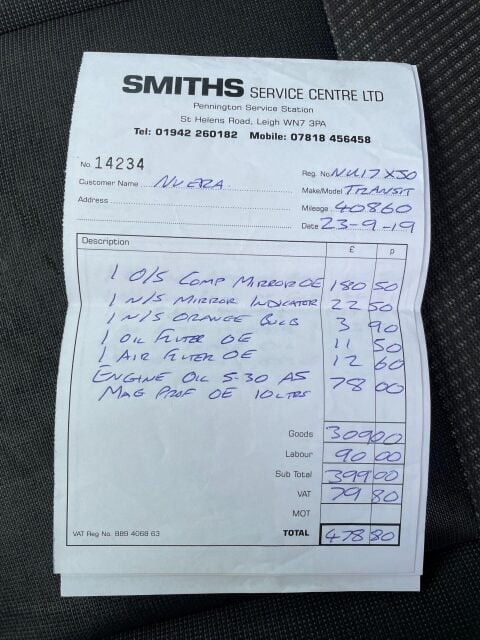 SMITHS SERVICE CENTRE LTD
Pennington Service Station
St Helens Road, Leigh WN7 3PA
Tel: 01942 260182 Mobile: 07818 456458
No. 14234
Reg. No. NU17 XJO
Customer Name NU ERA.
Make/Model TRANSIT
Address
Mileage 40860
Date 23-9-19
Description £ p
1 O/S COMP MIRROR OE 180 50
1 N/S MIRROR INDICATOR 22 50
1 N/S ORANGE BULB 3 90
1 OIL FILTER OE 11 50
1 AIR FILTER OE 12 60
ENGINE OIL 5-30 A5 78 00
MAG PROF OE 10 LTRS
Goods 309 00
Labour 90 00
Sub Total 399 00
VAT 79 80
MOT
VAT Reg No. 889 4068 63 TOTAL 478 80